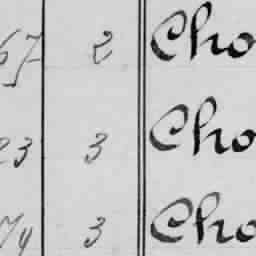 67 2 Cho
23 3 Cho
74 3 Cho